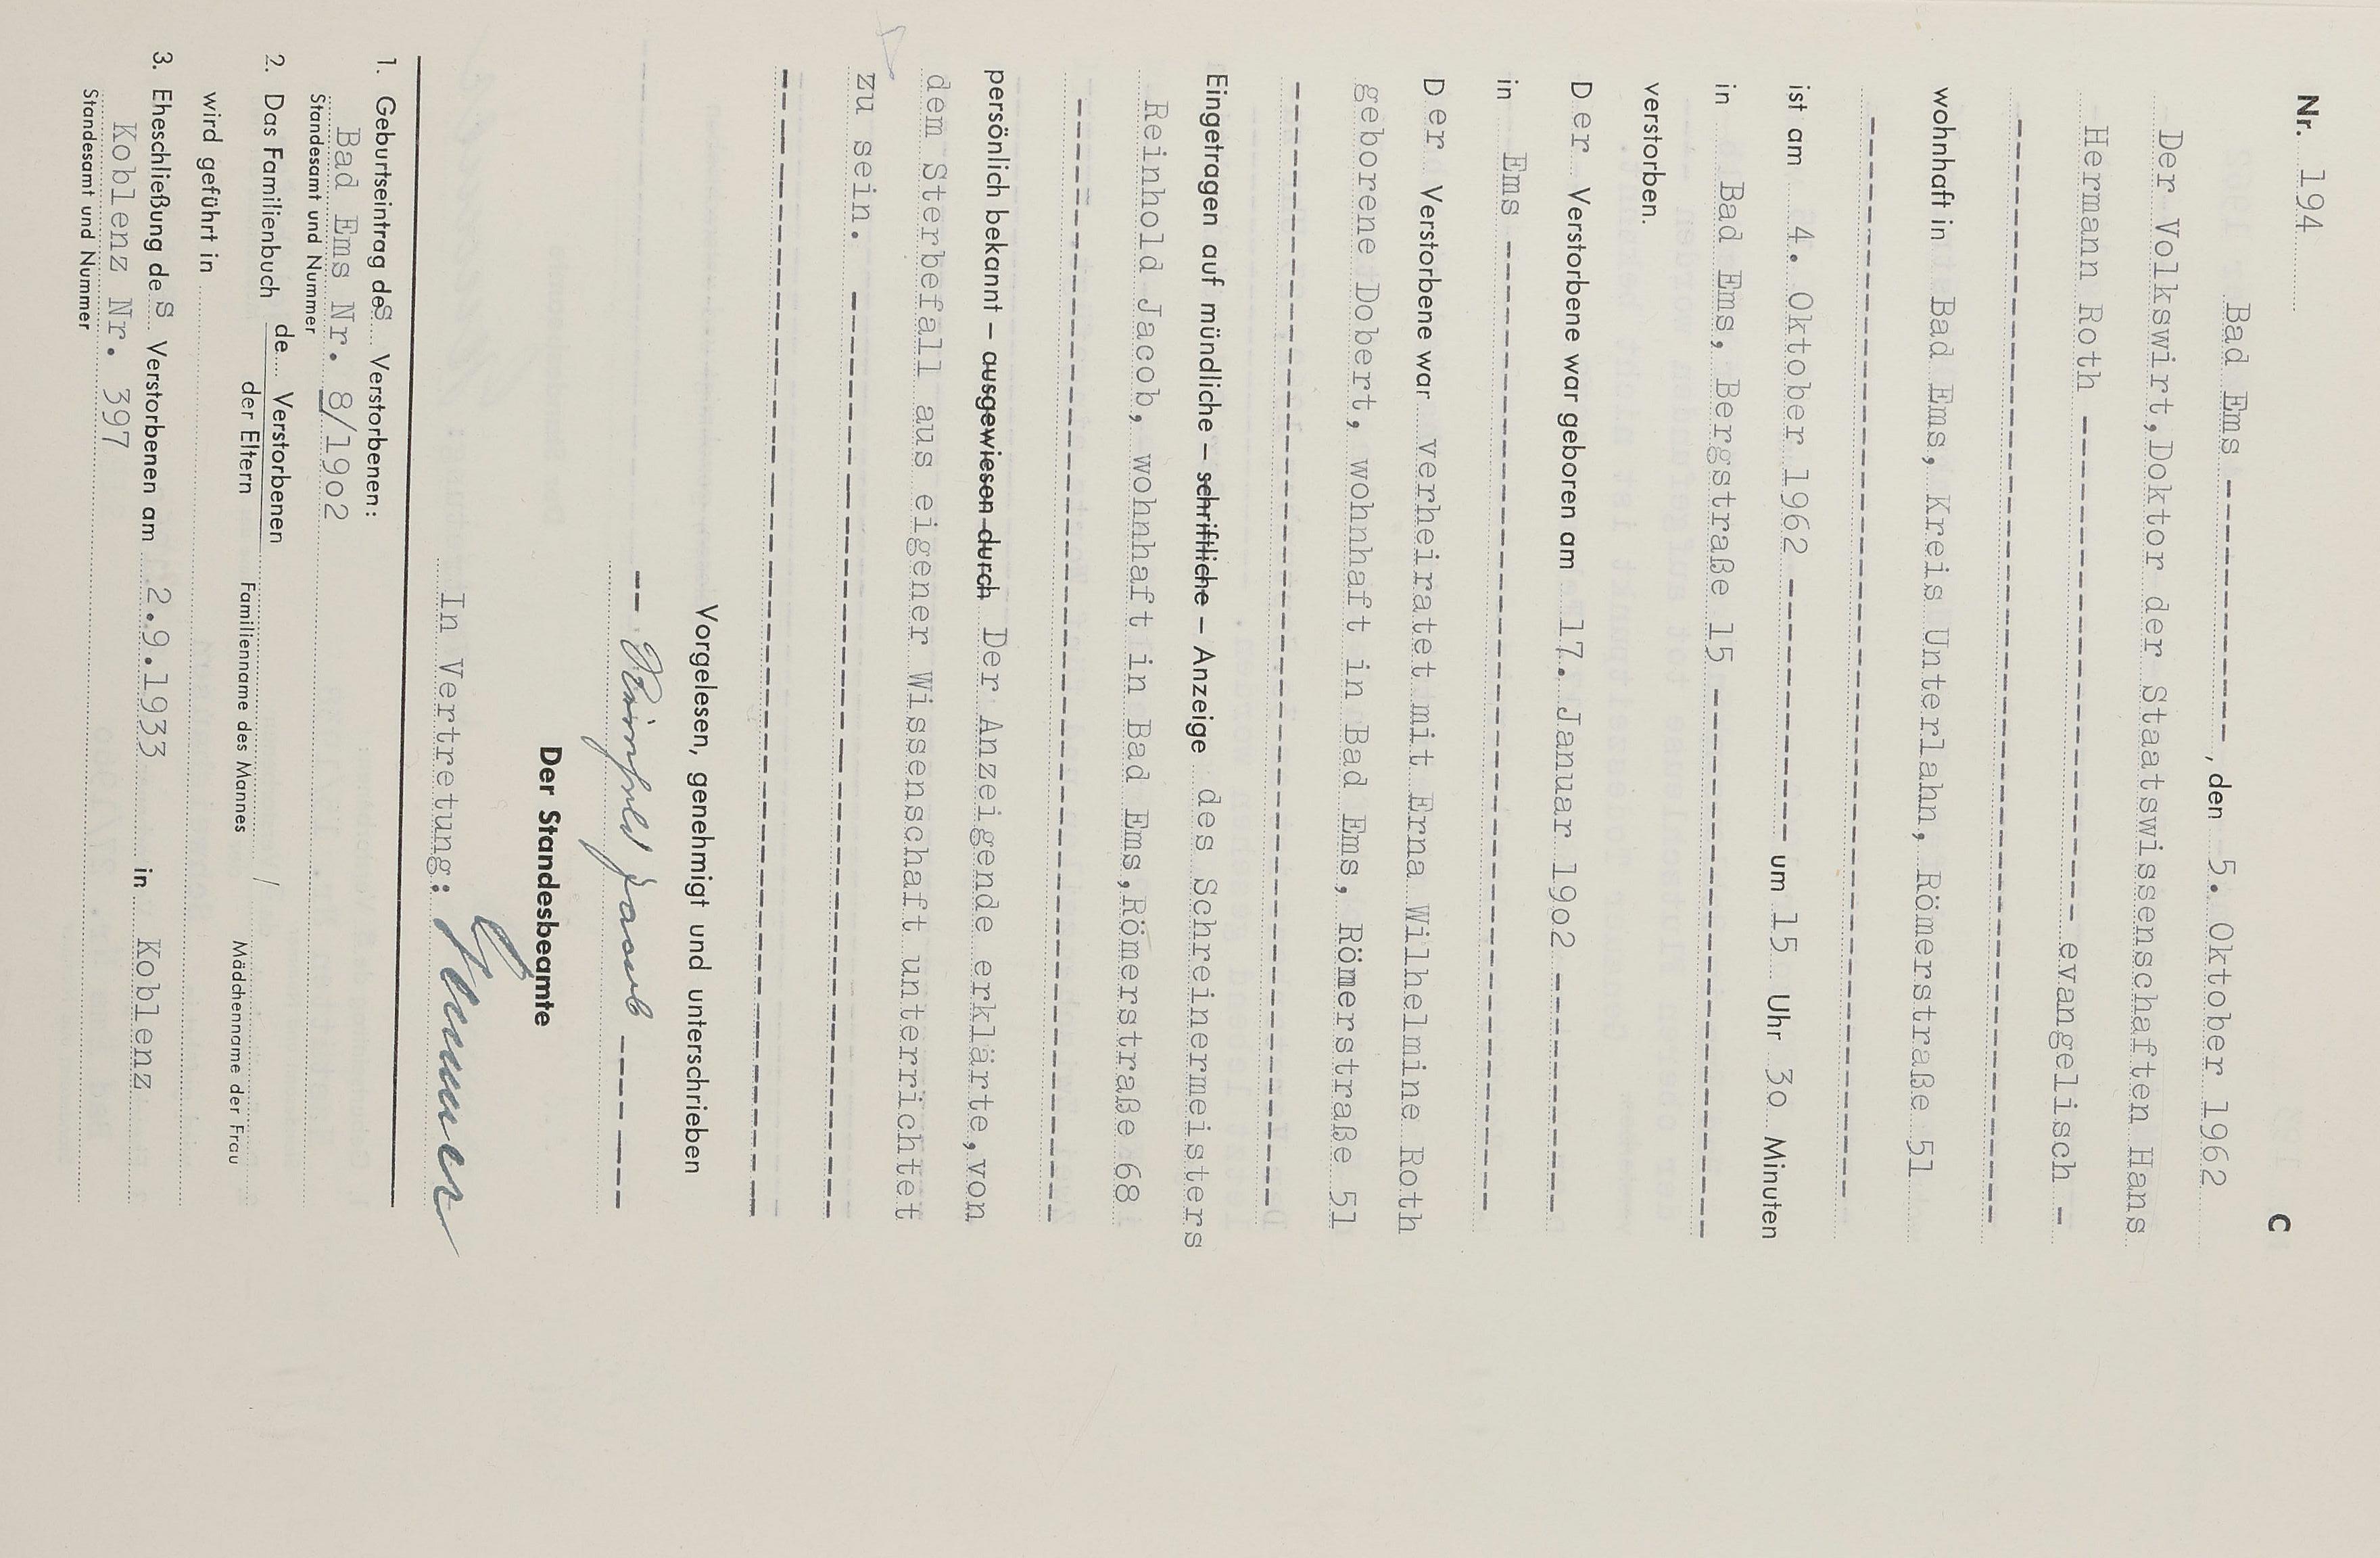 C
Nr. 194
Bad Ems ------------, den 5. Oktober 1962
Der Volkswirt, Doktor der Staatswissenschaften Hans
Hermann Roth ------------------------ evangelisch -
wohnhaft in Bad Ems, Kreis Unterlahn, Römerstraße 51
ist am 4. Oktober 1962 ------------ um 15 Uhr 30 Minuten
in Bad Ems, Bergstraße 15 ------------------------
verstorben.
Der Verstorbene war geboren am 17. Januar 19o2 ----------
in Ems ------------------------------------------
Der Verstorbene war verheiratet mit Erna Wilhelmine Roth
geborene Dobert, wohnhaft in Bad Ems, Römerstraße 51
Eingetragen auf mündliche – schriftliche – Anzeige des Schreinermeisters
Reinhold Jacob, wohnhaft in Bad Ems, Römerstraße 68
persönlich bekannt – ausgewiesen durch Der Anzeigende erklärte, von
dem Sterbefall aus eigener Wissenschaft unterrichtet
zu sein. ------------------------------------------
Vorgelesen, genehmigt und unterschrieben
-- Reinhold Jacob --------
Der Standesbeamte
In Vertretung:
1. Geburtseintrag des Verstorbenen:
Bad Ems Nr. 8/19o2
Standesamt und Nummer
2. Das Familienbuch de Verstorbenen
der Eltern
Familienname des Mannes / Mädchenname der Frau
wird geführt in
3. Eheschließung des Verstorbenen am 2.9.1933 in Koblenz
Koblenz Nr. 397
Standesamt und Nummer